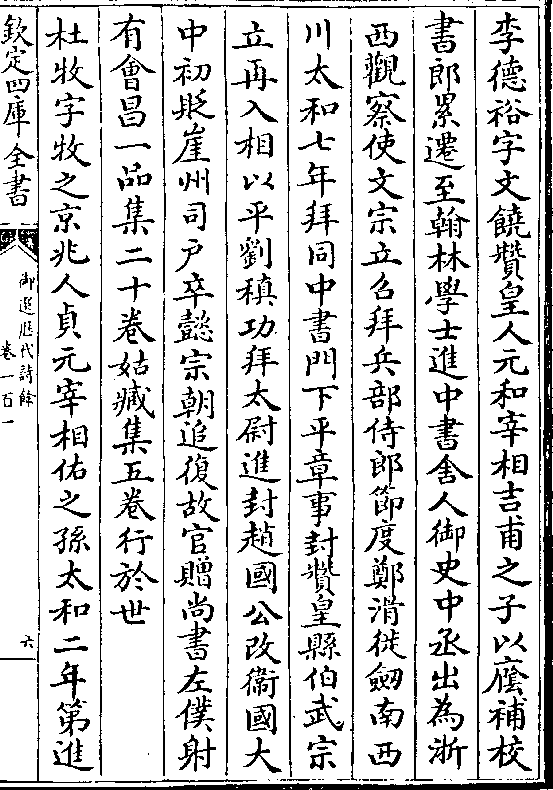 李德裕字文饒贊皇人元和宰相吉甫之子以廕補校
書郎累遷至翰林學士進中書舍人御史中丞出為浙
西觀察使文宗立召拜兵部侍郎節度鄭滑徙劒南西
川太和七年拜同中書門下平章事封贊皇縣伯武宗
立再入相以平劉稹功拜太尉進封趙國公改衞國大
中初貶崖州司戸卒懿宗朝追復故官贈尚書左僕射
有會昌一品集二十卷姑臧集五卷行於世
杜牧字牧之京兆人貞元宰相佑之孫太和二年第進
欽定四庫全書
御選歷代詩餘
卷一百一
六